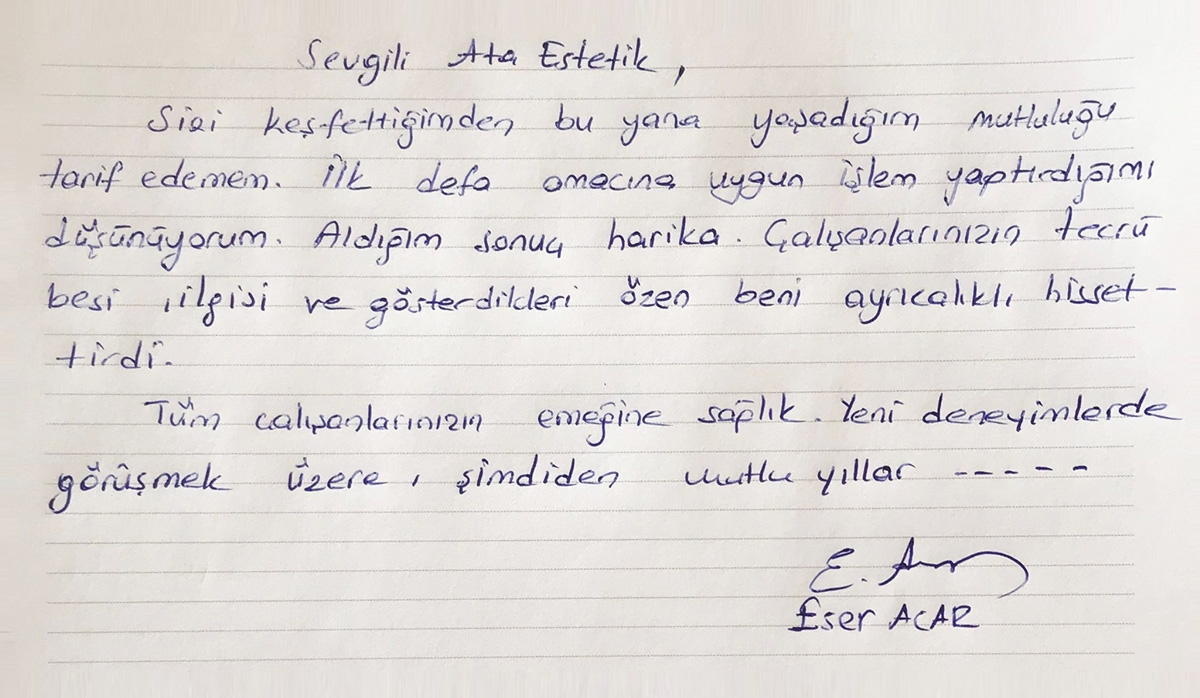 Sevgili Ata Estetik,
Sizi keşfettiğimden bu yana yaşadığım mutluluğu
tarif edemem. İlk defa amacına uygun işlem yaptırdığımı
düşünüyorum. Aldığım sonuç harika. Çalışanlarınızın tecrü
besi, ilgisi ve gösterdikleri özen beni ayrıcalıklı hisset-
tirdi.
Tüm çalışanlarınızın emeğine sağlık. Yeni deneyimlerde
görüşmek üzere, şimdiden mutlu yıllar -----
E. A
Eser ACAR